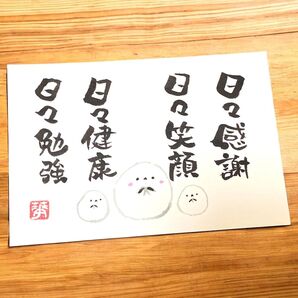 日々感謝
日々笑顔
日々健康
日々勉強